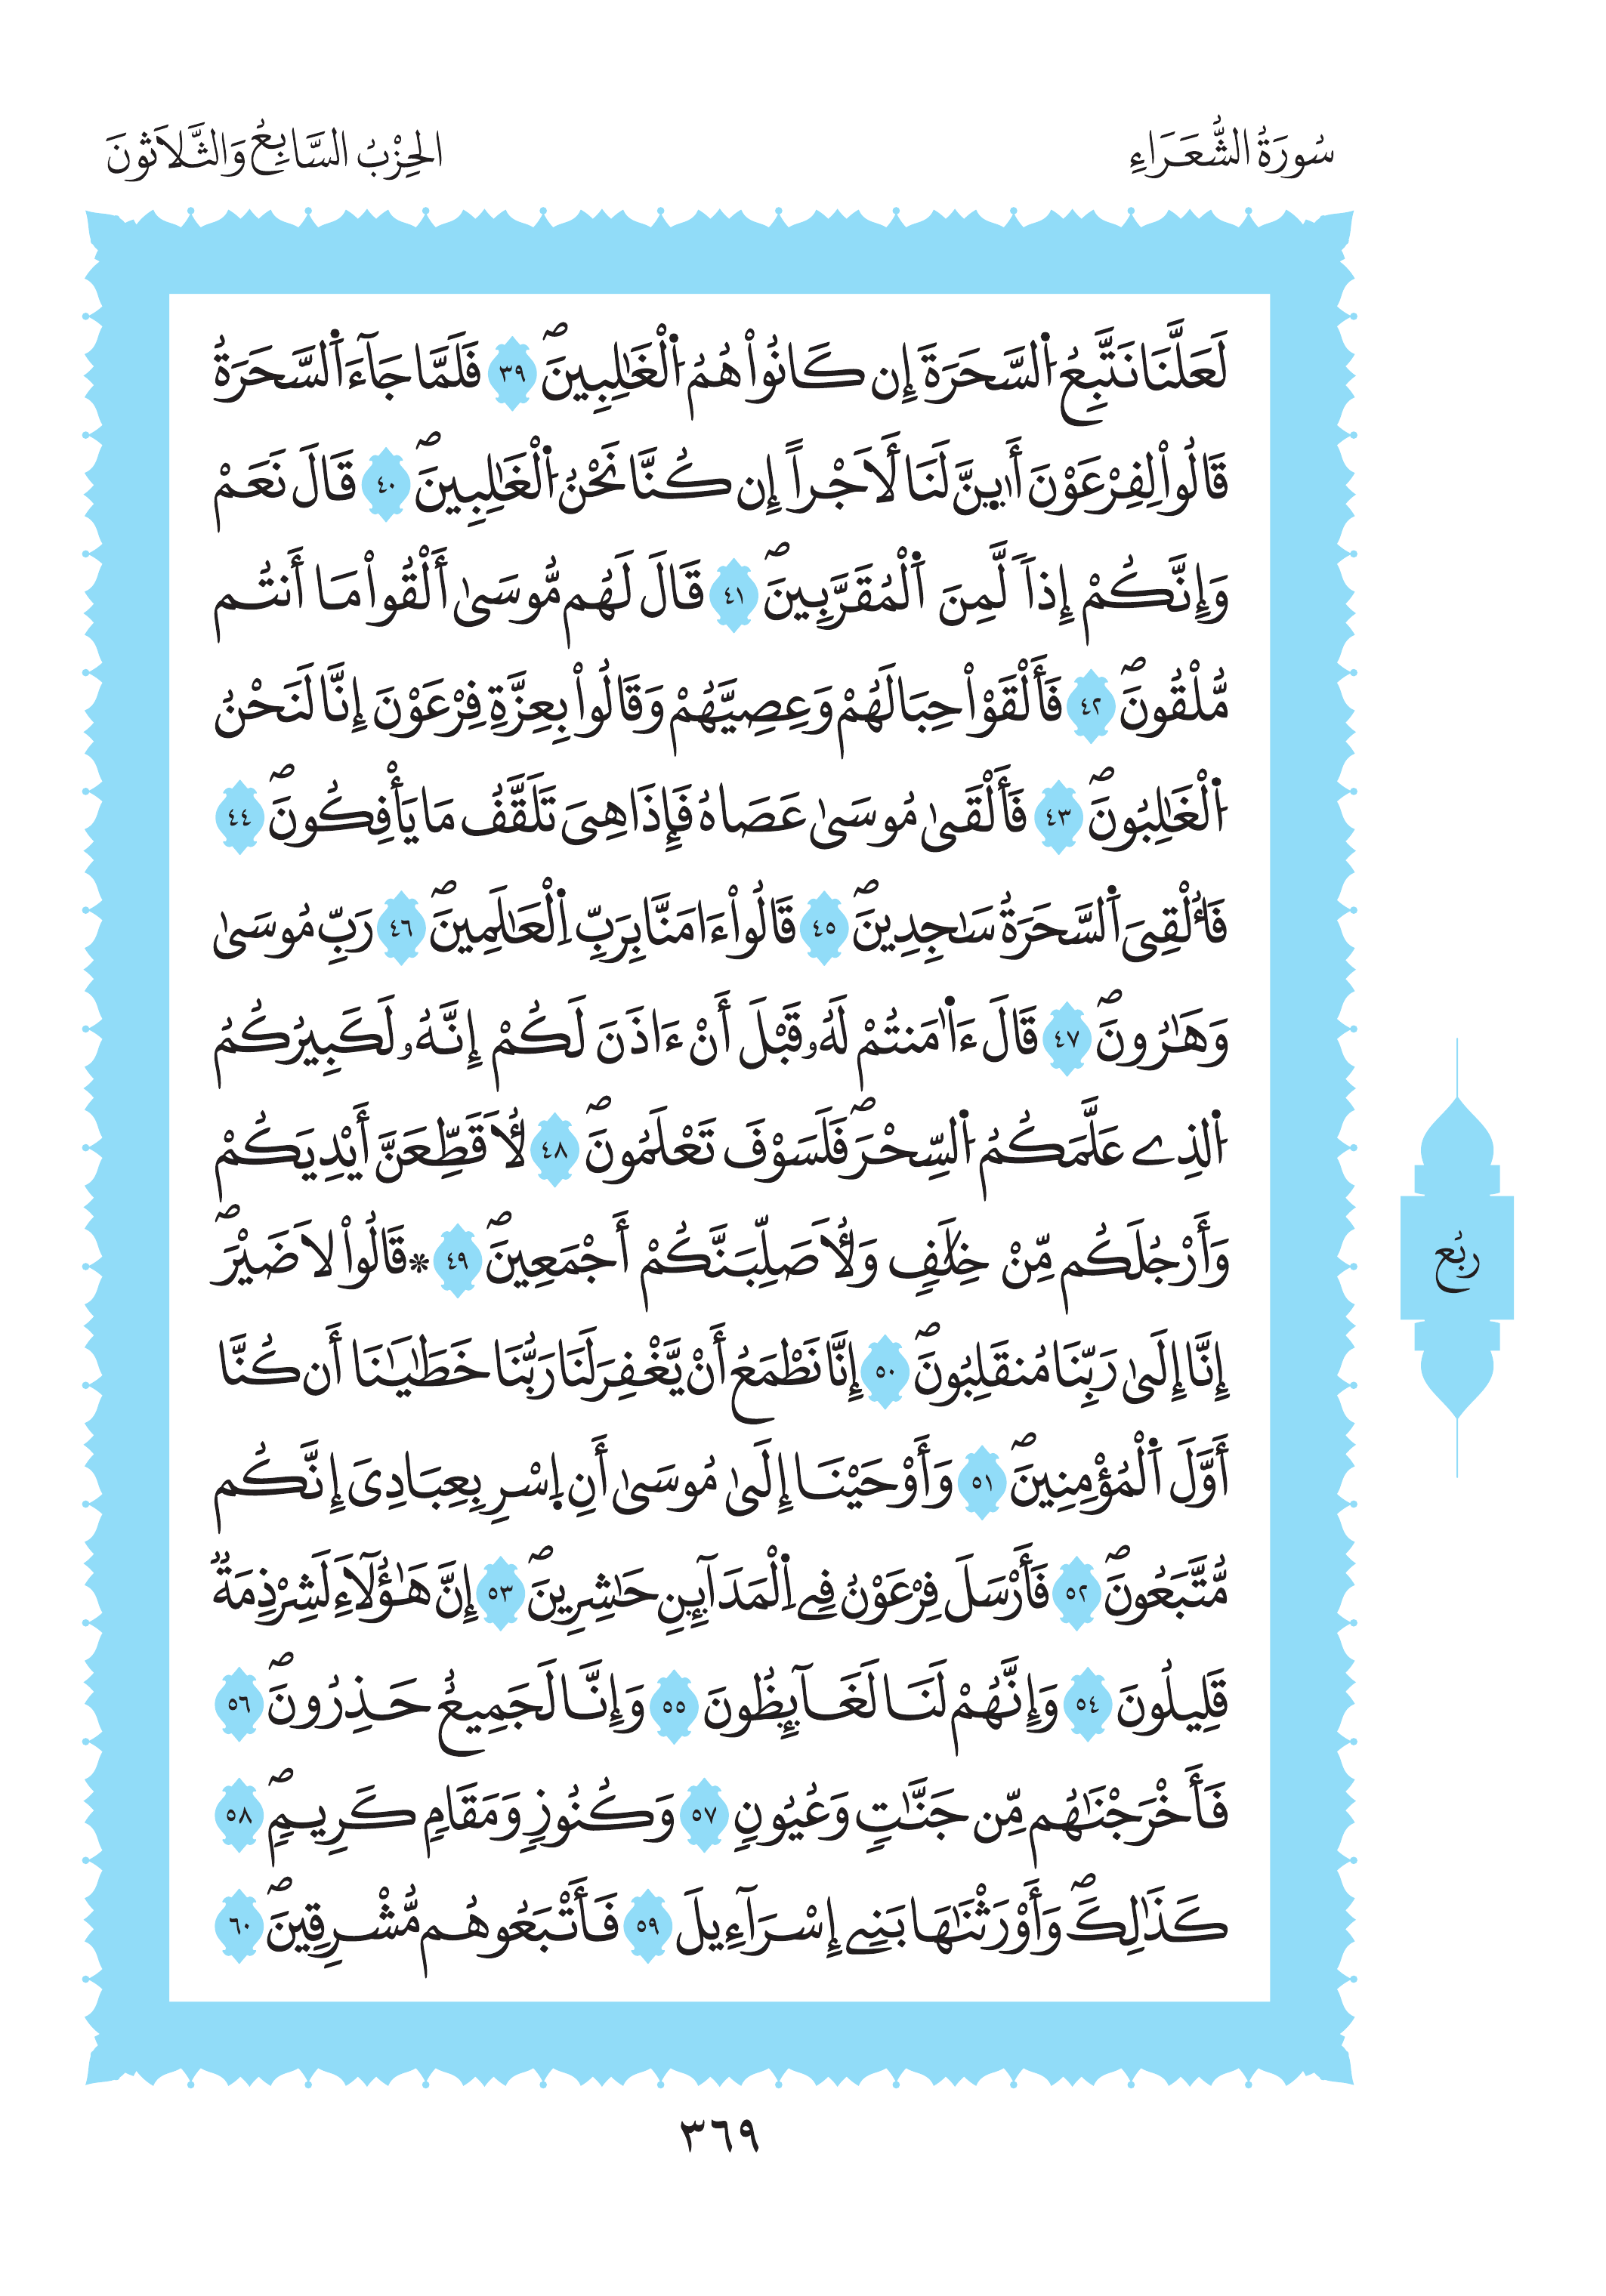 سُورَةُ الشُّعَرَاءِ
الحِزْبُ السَّابِعُ وَالثَّلَاثُونَ
لَعَلَّنَا نَتَّبِعُ اُ۬لسَّحَرَةَ إِن كَانُواْ هُمُ اُ۬لْغَٰلِبِينَۖ ٣٩ فَلَمَّا جَآءَ اَ۬لسَّحَرَةُ
قَالُواْ لِفِرْعَوْنَ أَا۟ىِٕنَّ لَنَا لَأَجْراً إِن كُنَّا نَحْنُ اُ۬لْغَٰلِبِينَۖ ٤٠ قَالَ نَعَمْ
وَإِنَّكُمْ إِذاٗ لَّمِنَ اَ۬لْمُقَرَّبِينَۖ ٤١ قَالَ لَهُم مُّوسَىٰ أَلْقُواْ مَا أَنتُم
مُّلْقُونَۖ ٤٢ فَأَلْقَوْاْ حِبَالَهُمْ وَعِصِيَّهُمْ وَقَالُواْ بِعِزَّةِ فِرْعَوْنَ إِنَّا لَنَحْنُ
اُ۬لْغَٰلِبُونَۖ ٤٣ فَأَلْقَىٰ مُوسَىٰ عَصَاهُ فَإِذَا هِىَ تَلَقَّفُ مَا يَأْفِكُونَۖ ٤٤
فَأُلْقِىَ اَ۬لسَّحَرَةُ سَٰجِدِينَۖ ٤٥ قَالُواْ ءَامَنَّا بِرَبِّ اِ۬لْعَٰلَمِينَۖ ٤٦ رَبِّ مُوسَىٰ
وَهَٰرُونَۖ ٤٧ قَالَ ءَا۬مَنتُمْ لَهُۥ قَبْلَ أَنْ ءَاذَنَ لَكُمْ إِنَّهُۥ لَكَبِيرُكُمُ
اُ۬لذِے عَلَّمَكُمُ اُ۬لسِّحْرَۖ فَلَسَوْفَ تَعْلَمُونَۖ ٤٨ لَأُقَطِّعَنَّ أَيْدِيَكُمْ
وَأَرْجُلَكُم مِّنْ خِلَٰفٍ وَلَأُصَلِّبَنَّكُمْ أَجْمَعِينَۖ ٤٩ * قَالُواْ لَا ضَيْرَۖ
إِنَّا إِلَىٰ رَبِّنَا مُنقَلِبُونَۖ ٥٠ إِنَّا نَطْمَعُ أَنْ يَّغْفِرَ لَنَا رَبُّنَا خَطَٰيَٰنَا أَن كُنَّا
أَوَّلَ اَ۬لْمُؤْمِنِينَۖ ٥١ وَأَوْحَيْنَا إِلَىٰ مُوسَىٰ أَنِ اِ۪سْرِ بِعِبَادِىَ إِنَّكُم
مُّتَّبَعُونَۖ ٥٢ فَأَرْسَلَ فِرْعَوْنُ فِے اِ۬لْمَدَآئِنِ حَٰشِرِينَۖ ٥٣ إِنَّ هَٰؤُلَآءِ لَشِرْذِمَةٞ
قَلِيلُونَ ٥٤ وَإِنَّهُمْ لَنَا لَغَآئِظُونَ ٥٥ وَإِنَّا لَجَمِيعٌ حَذِرُونَۖ ٥٦
فَأَخْرَجْنَٰهُم مِّن جَنَّٰتٍ وَعُيُونٍ ٥٧ وَكُنُوزٍ وَمَقَامٍ كَرِيمٍۖ ٥٨
كَذَٰلِكَۖ وَأَوْرَثْنَٰهَا بَنِے إِسْرَآءِيلَ ٥٩ فَأَتْبَعُوهُم مُّشْرِقِينَۖ ٦٠
رُبُع
٣٦٩